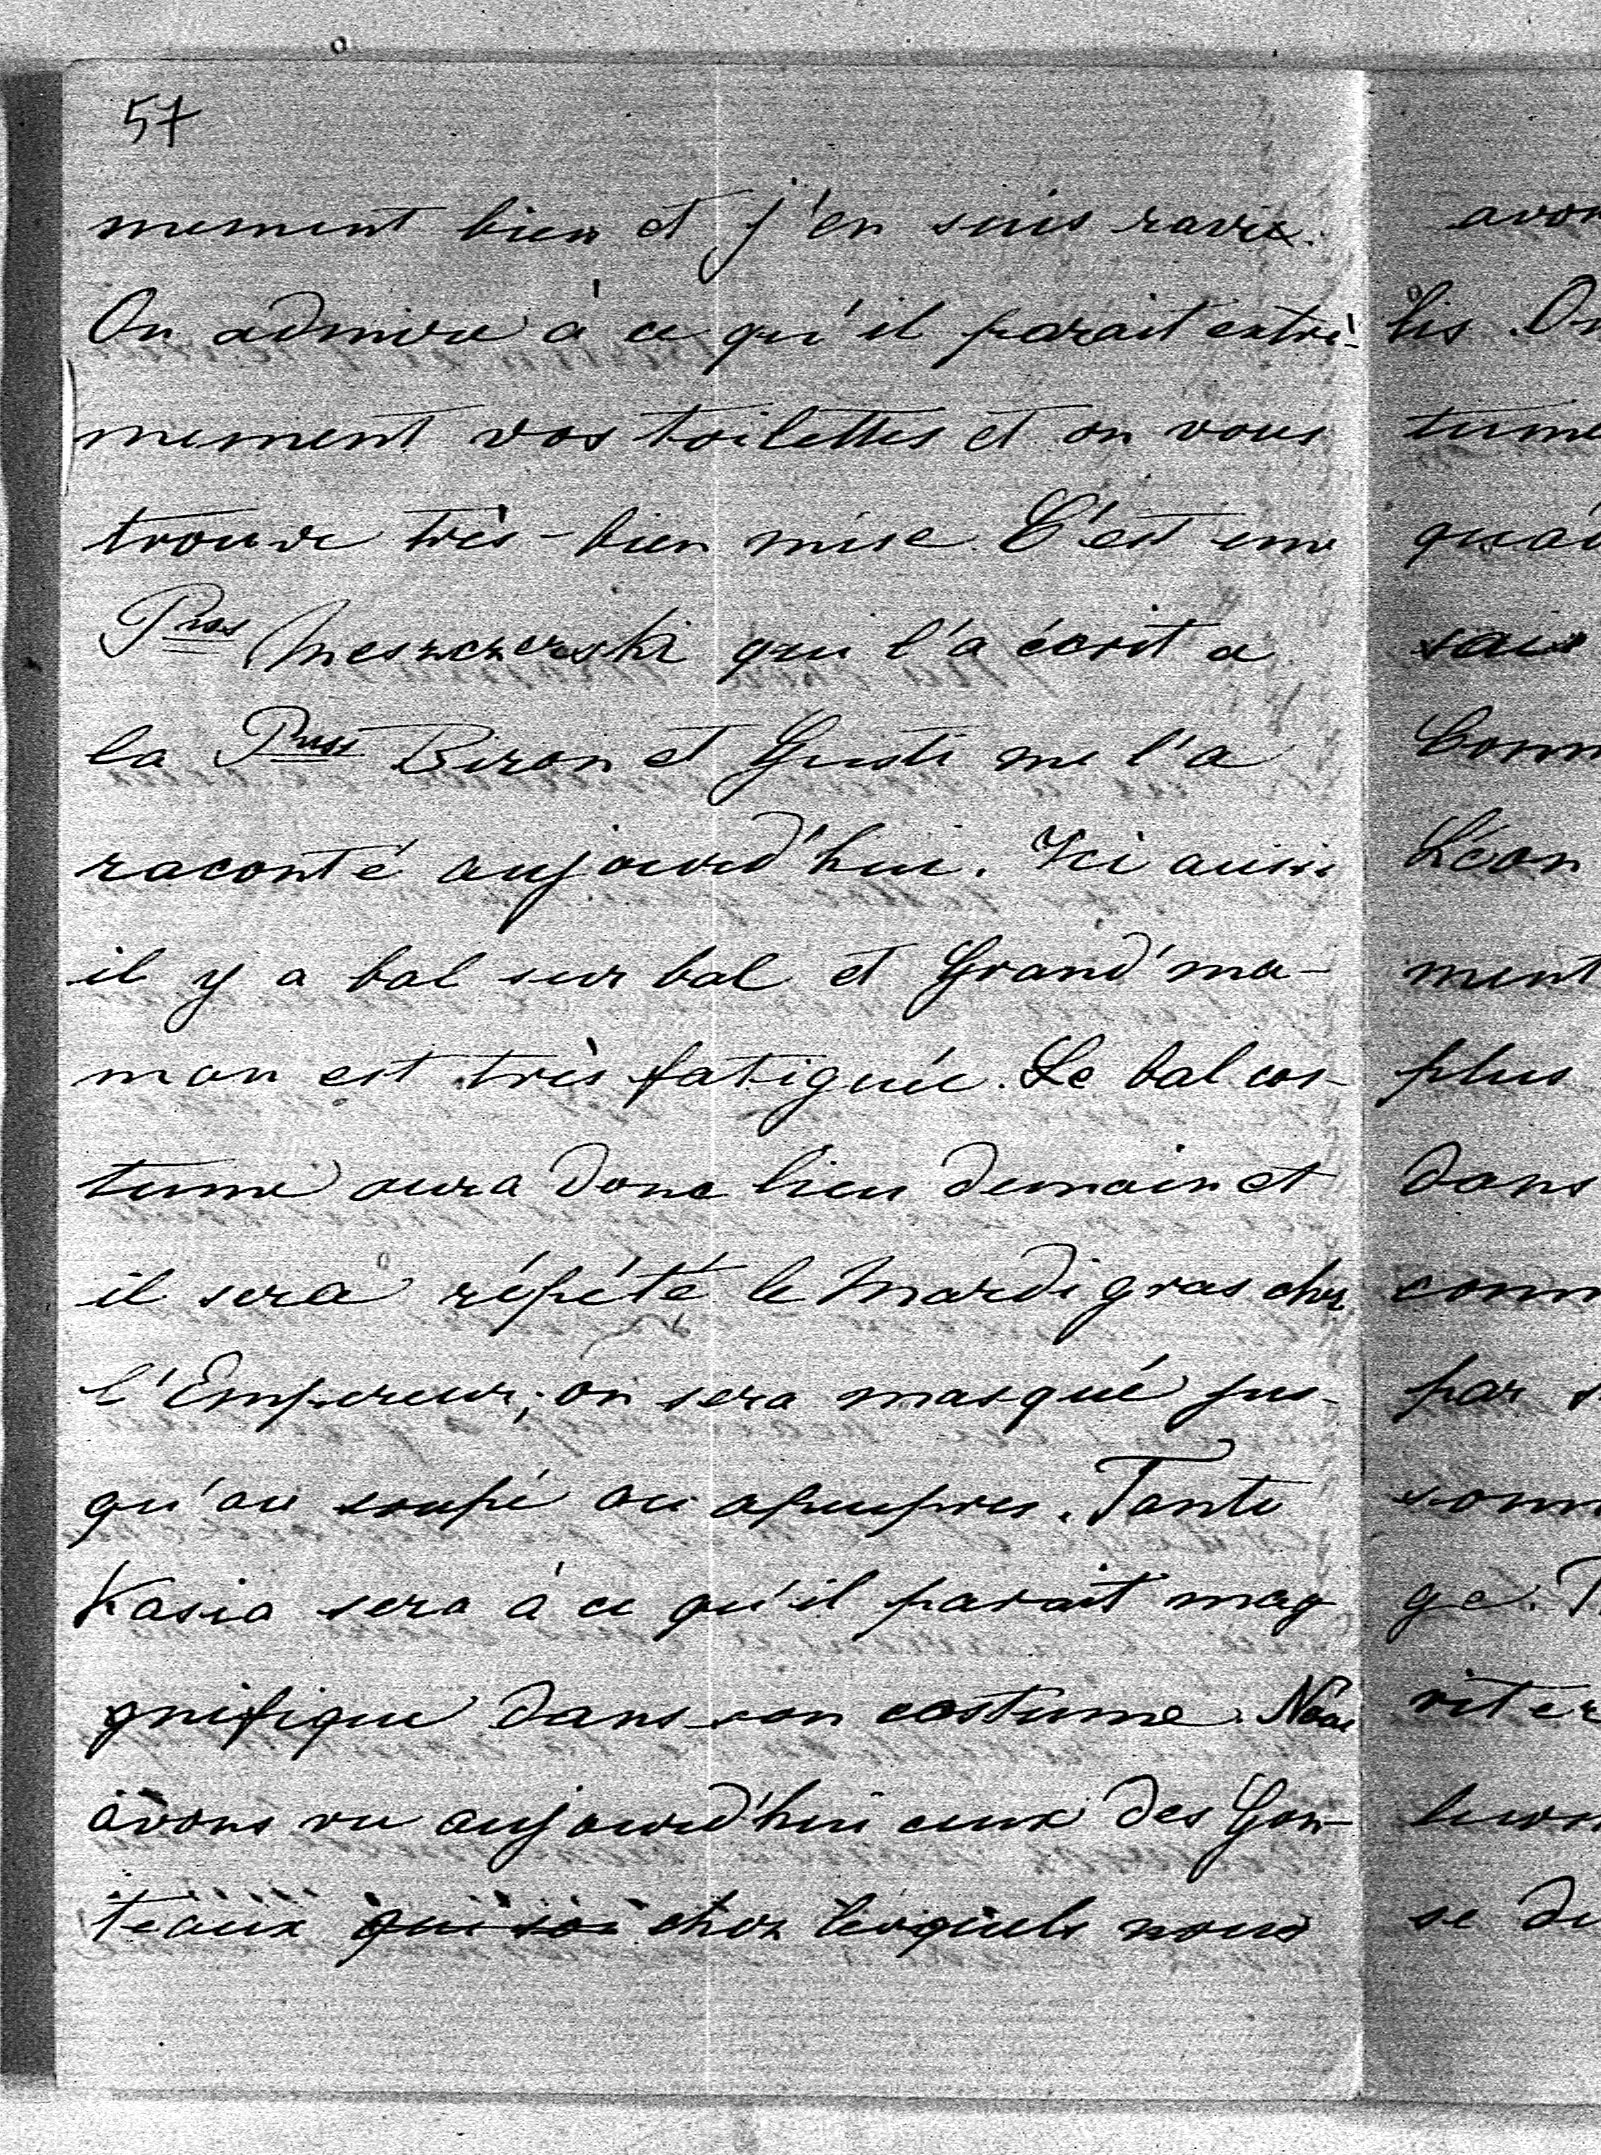 57
mement bien et j'en suis ravie.
On admire à ce qu'il parait extrè-
mement vos toilettes et on vous
trouve très-bien mise. C'est une
Pcess Meszczerski qui l'a écrit a
la Pcess Biron et Gusti me l'a
raconté aujourd'hui. Ici aussi
il y a bal sur bal et Grand'ma-
man est très fatiguée. Le bal cos-
tumé aura donc lieu demain et
il sera répété le Mardi gras chez
l'Empereur; on sera masqué jus-
qu'au soupé ou apeupres. Tante
Kasia sera à ce qu'il parait mag
gnifique dans son costume. Nous
avons vu aujourd'hui ceux des Gon-
teaux qui soi chez lesquels nous